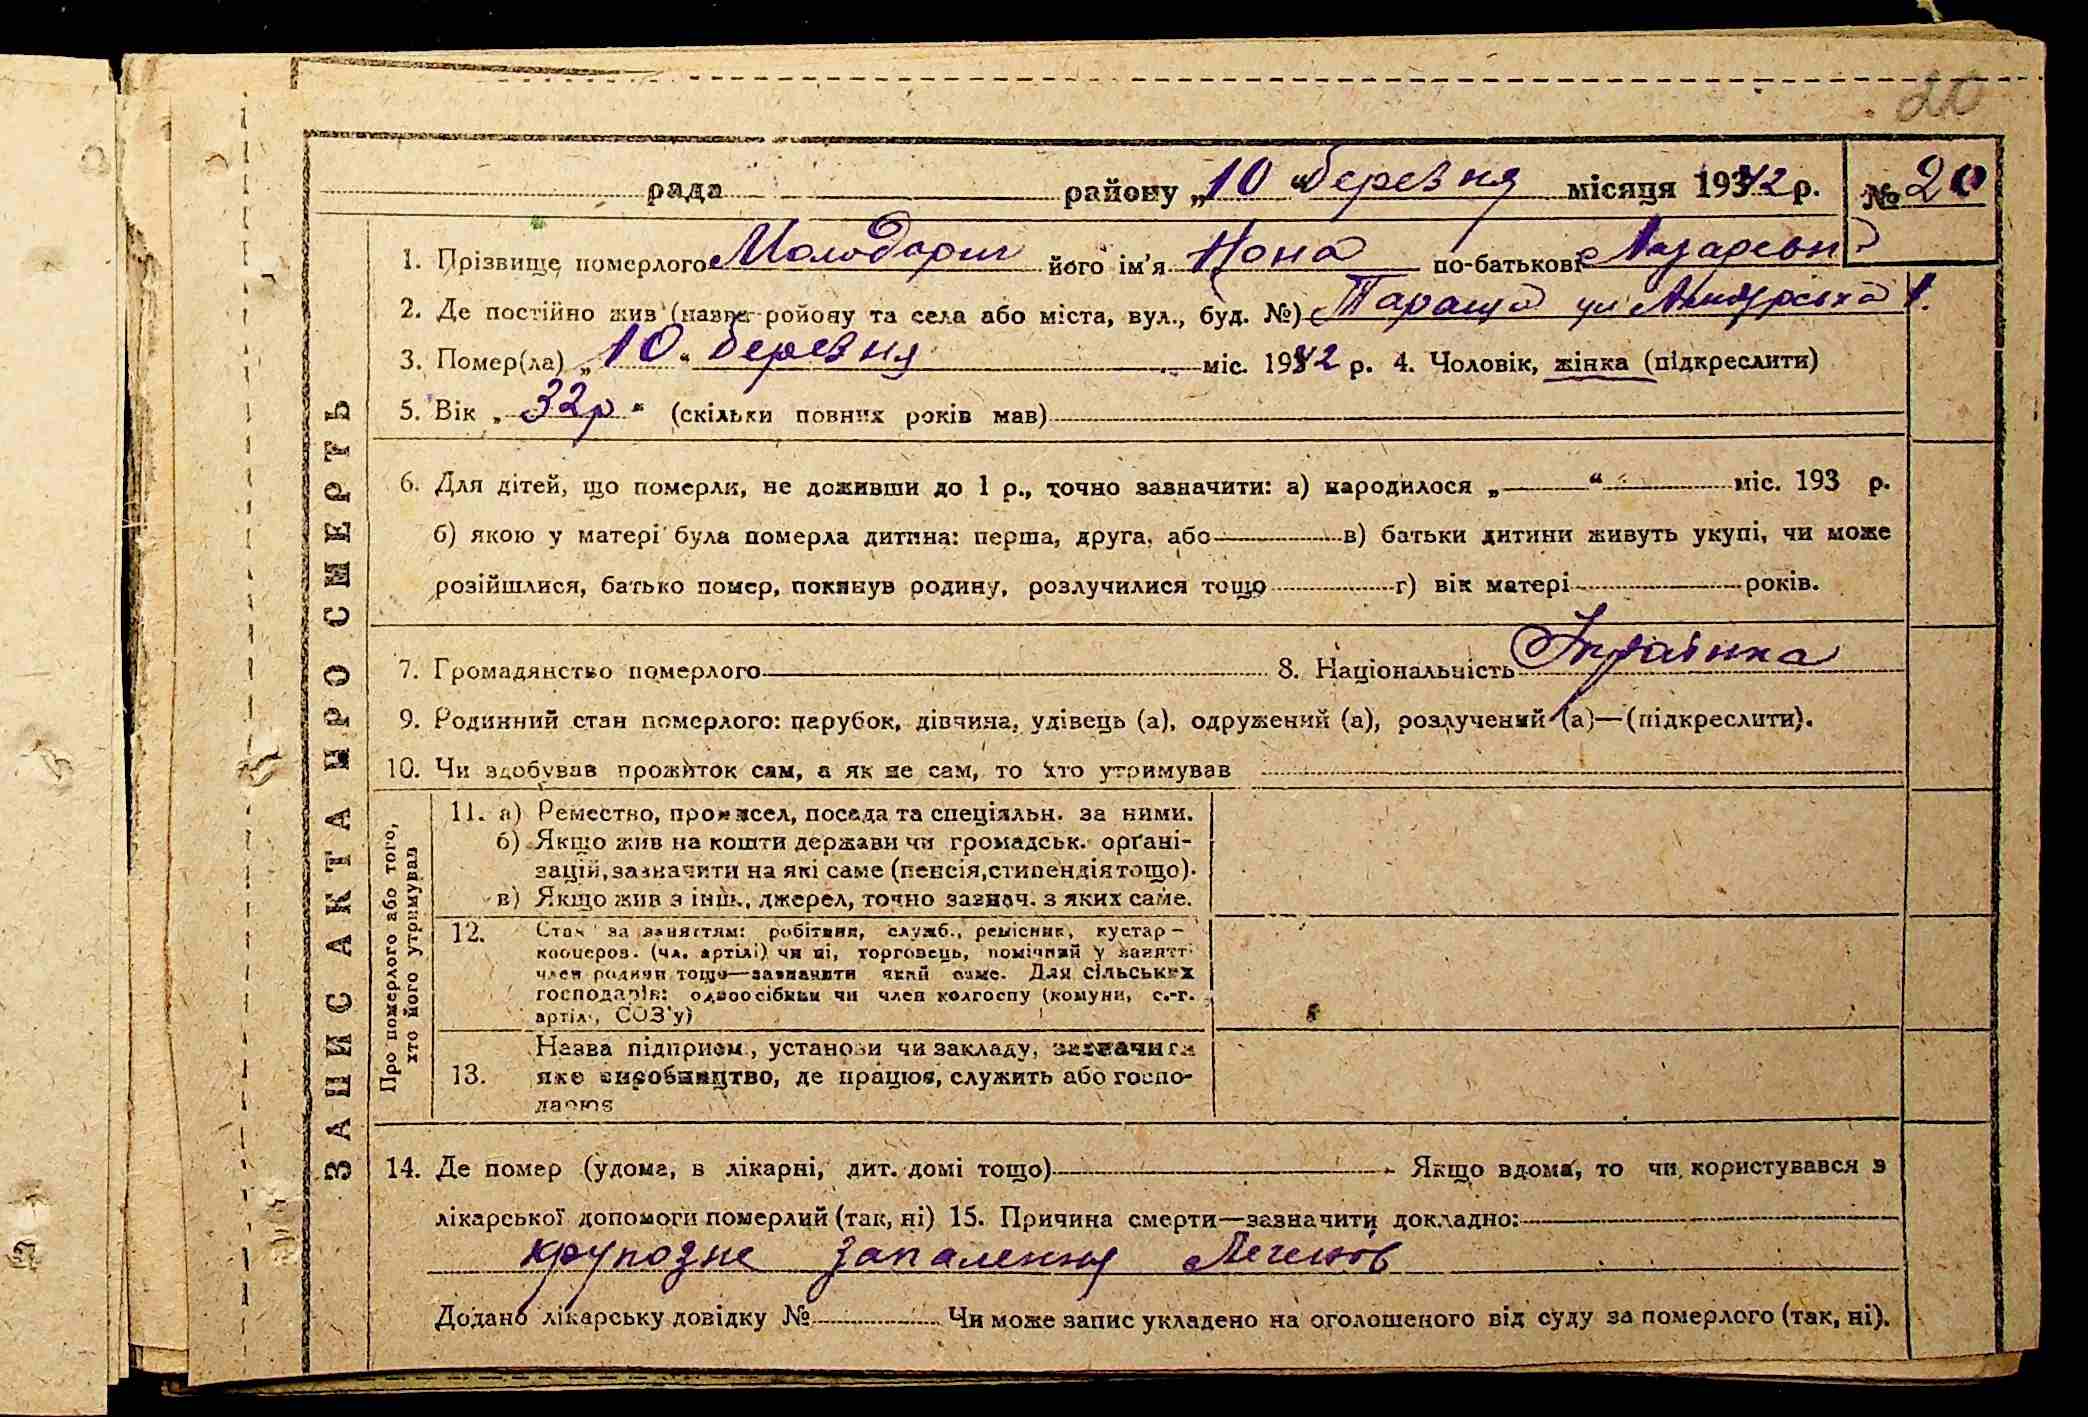 20
рада району „10 “ березня місяця 1942 р. № 20
1. Прізвище померлого Молодориг його ім'я Нона по-батькові Лазаревн
2. Де постійно жив (назва ройону та села або міста, вул., буд. №) Тараща ул 1.
3. Помер(ла) „10“ березня міс. 1942 р. 4. Чоловік, жінка (підкреслити)
5. Вік „ 32р “ (скільки повних років мав)
6. Для дітей, що померли, не доживши до 1 р., точно зазначити: а) народилося „ “ міс. 193 р.
б) якою у матері була померла дитина: перша, друга, або в) батьки дитини живуть укупі, чи може
розійшлися, батько помер, покинув родину, розлучилися тощо г) вік матері років.
7. Громадянство померлого 8. Національність Українка
9. Родинний стан померлого: парубок, дівчина, удівець (а), одружений (а), розлучений (а)—(підкреслити).
10. Чи здобував прожиток сам, а як не сам, то хто утримував
ЗАПИС АКТА ПРО СМЕРТЬ
Про померлого або того,
хто його утримував
11. а) Ремество, промисел, посада та спеціяльн. за ними.
б) Якщо жив на кошти держави чи громадськ. орґані-
зацій, зазначити на які саме (пенсія, стипендія тощо).
в) Якщо жив з інш., джерел, точно зазнач. з яких саме.
12. Стан за заняттям: робітник, служб., ремісник, кустар—
кооперов. (чл. артілі) чи ні, торговець, помічний у занятті
член родини тощо—зазначити який саме. Для сільських
господарів: одноосібний чи член колгоспу (комуни, с.-г.
артіл., СОЗ'у)
Назва підприєм., установи чи закладу, зазначити
13. яке виробництво, де працює, служить або госпо-
дарює
14. Де помер (удома, в лікарні, дит. домі тощо) Якщо вдома, то чи користувався з
лікарської допомоги померлий (так, ні) 15. Причина смерти—зазначити докладно:
крупозне запалення легенів
Додано лікарську довідку № Чи може запис укладено на оголошеного від суду за померлого (так, ні).